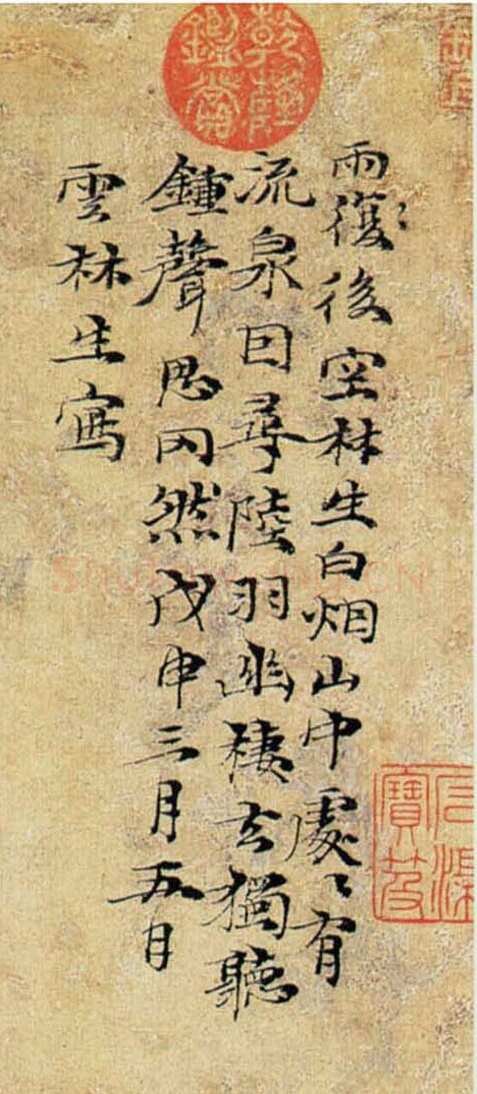 乾隆
鑑賞
雨復後空林生白烟山中處〻有
流泉因尋陸羽幽棲去獨聽
鍾聲思罔然戊申三月五日
雲林生寫
石渠
寶笈